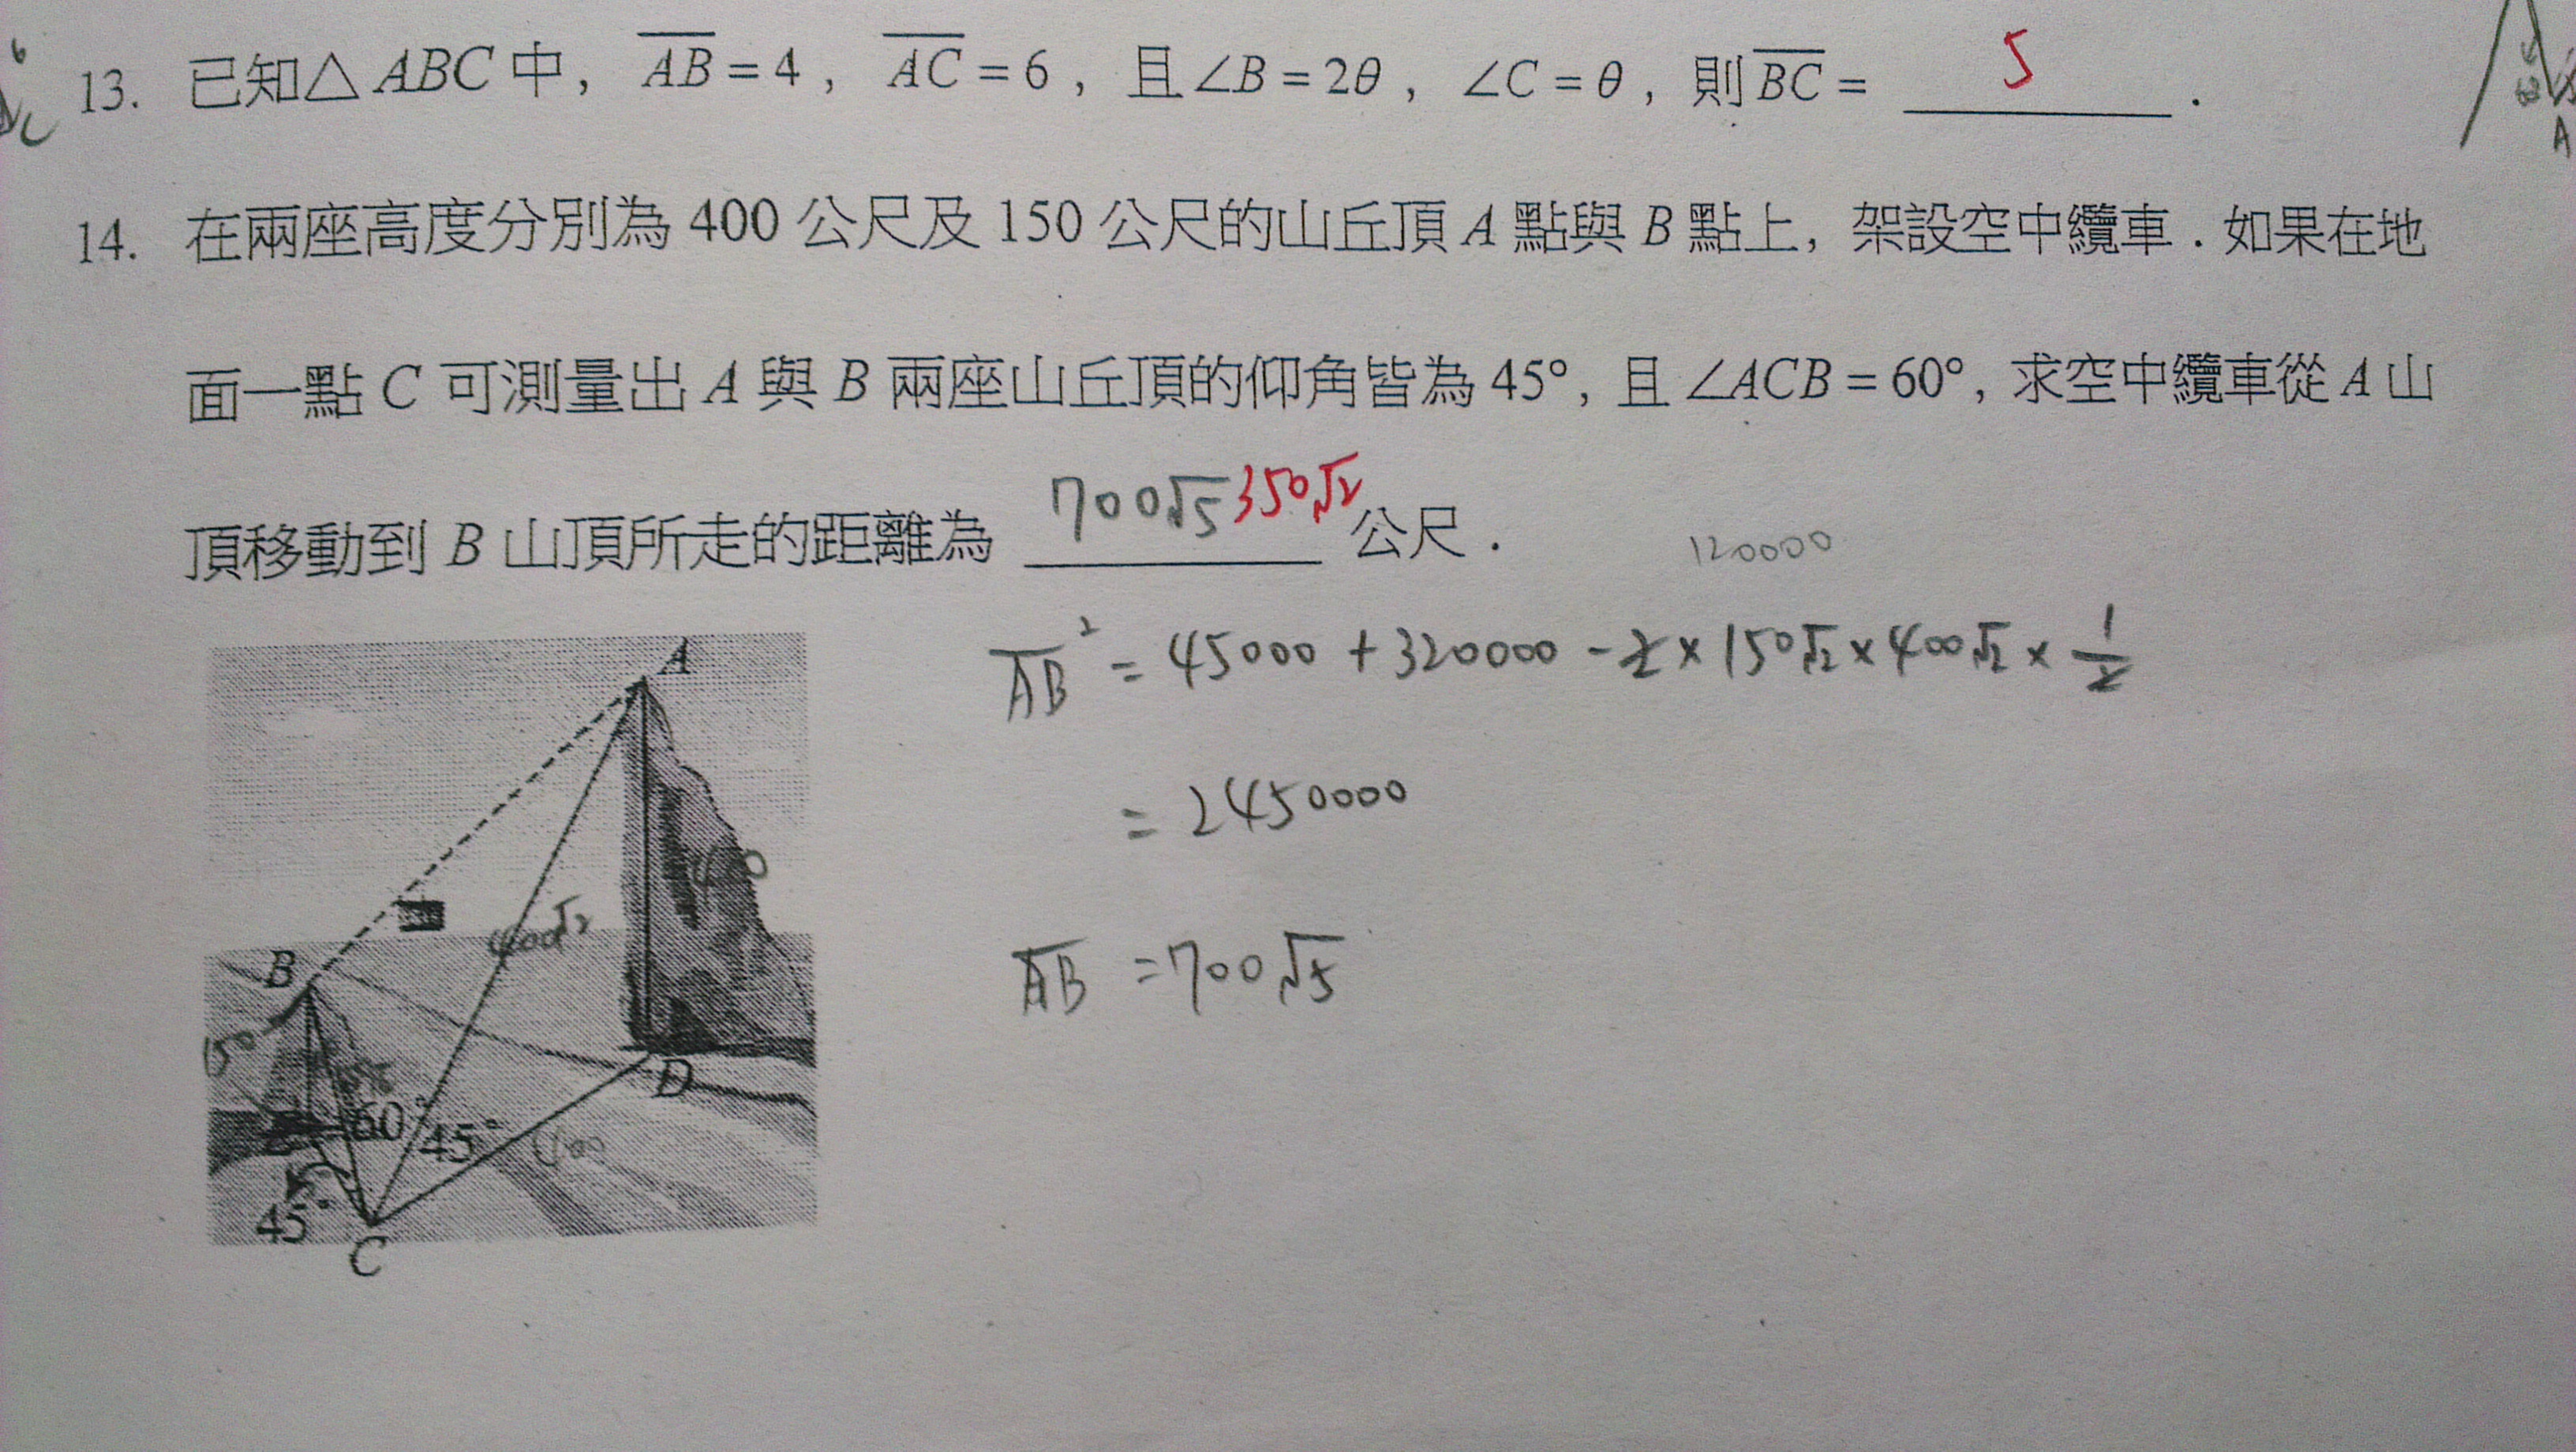 13. 已知△ABC中，AB=4，AC=6，且∠B=2θ，∠C=θ，則BC= 5 .
14. 在兩座高度分別為 400 公尺及 150 公尺的山丘頂 A 點與 B 點上，架設空中纜車．如果在地
面一點 C 可測量出 A 與 B 兩座山丘頂的仰角皆為 45°，且∠ACB=60°，求空中纜車從 A 山
頂移動到 B 山頂所走的距離為 700√5 350√2 公尺．
120000
AB² = 45000 + 320000 - 2 × 150√2 × 400√2 × 1/2
= 2450000
AB = 700√5
A
400
400√2
B
150
D
60°
45°
400
45°
C
A